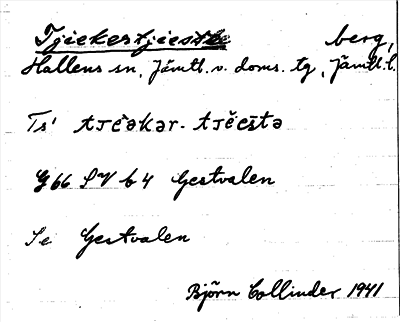 Tjiekestjieste berg,
Hallens sn, Jämtl. v. doms. tg, Jämtl. l.
Ts'
G66 SV b4 Gestvalen
Se Gestvalen
Björn Collinder 1941